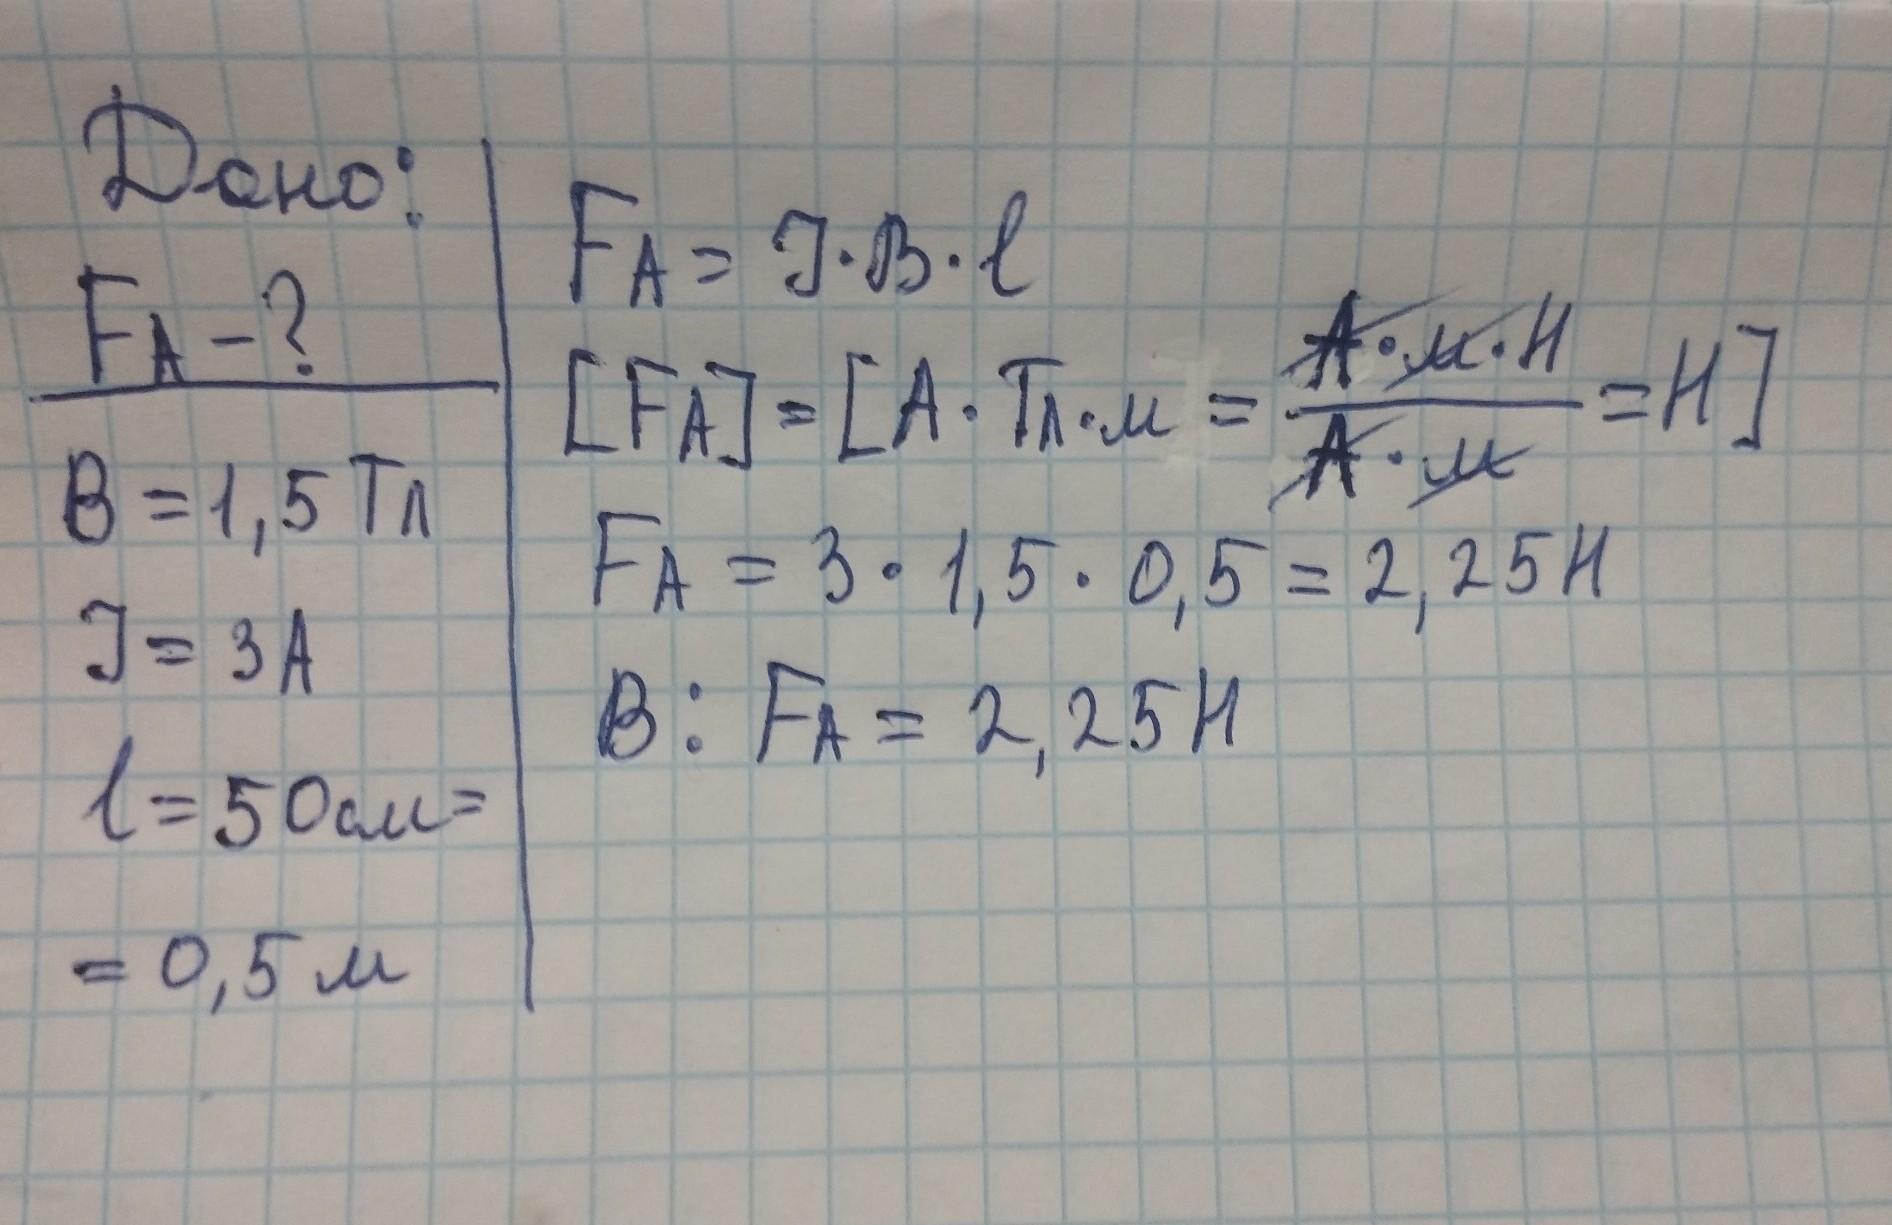 Дано:
FA - ?
B = 1,5 Тл
I = 3A
l = 50см =
= 0,5 м
FA = I · B · l
[FA] = [A · Тл · м = A · м · H / A · м = H]
FA = 3 · 1,5 · 0,5 = 2,25 H
B: FA = 2,25 H